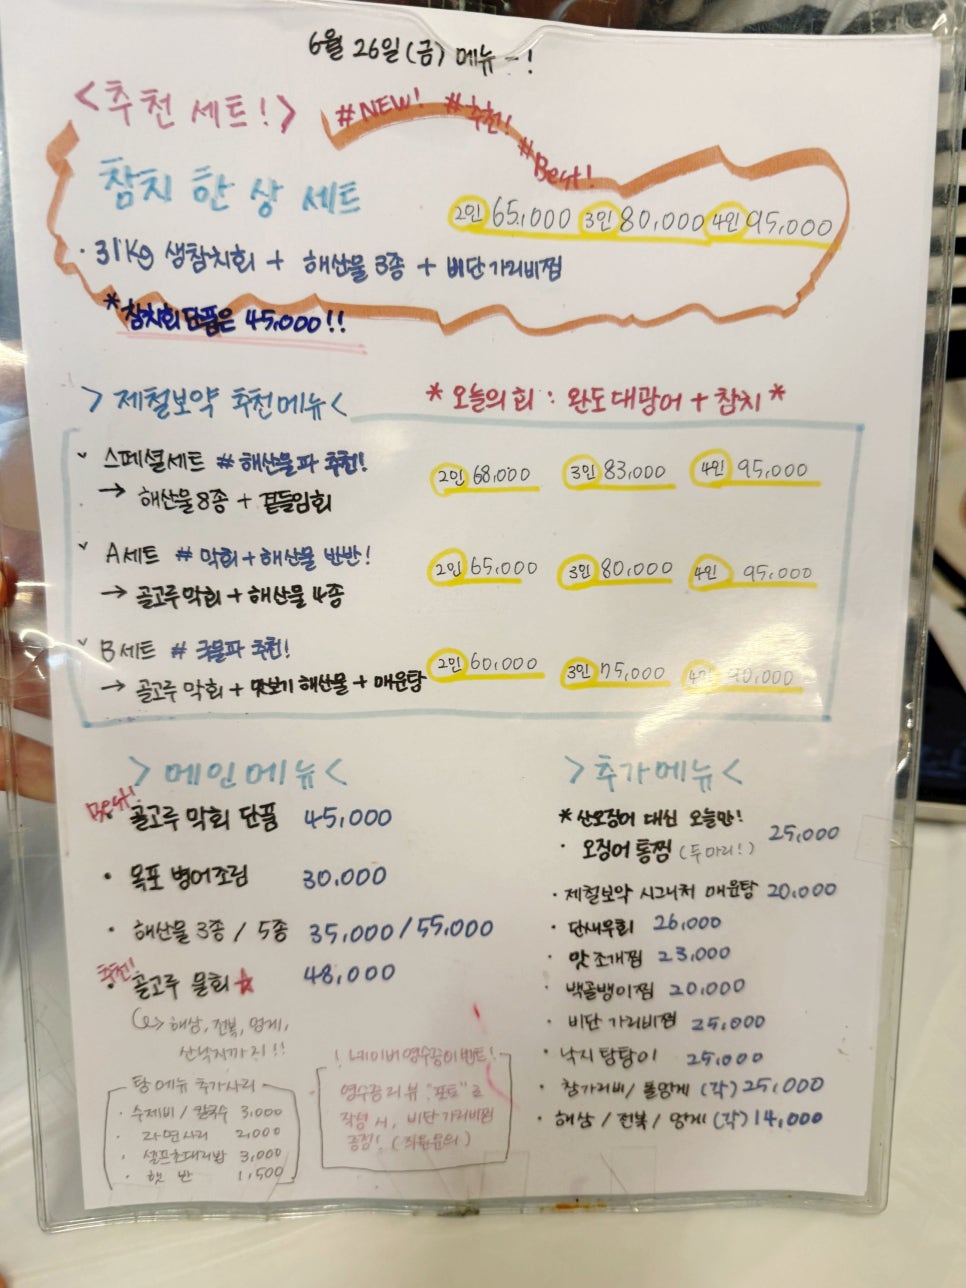 6월 26일(금) 메뉴 -!
<추천 세트!>
#NEW! #추천! #Best!
참치 한 상 세트
2인 65,000 3인 80,000 4인 95,000
· 31Kg 생참치회 + 해산물 3종 + 비단가리비찜
*참치회 단품은 45,000!!
>제철보약 추천메뉴<
* 오늘의 회 : 완도 대광어 + 참치 *
스페셜세트 #해산물파 추천!
2인 68,000 3인 83,000 4인 95,000
→ 해산물 8종 + 곁들임회
A세트 # 막회+해산물 반반!
2인 65,000 3인 80,000 4인 95,000
→ 골고루 막회 + 해산물 4종
B세트 # 국물파 추천!
2인 60,000 3인 75,000 4인 90,000
→ 골고루 막회 + 맛보기 해산물 + 매운탕
>메인메뉴<
Best! 골고루 막회 단품 45,000
· 목포 병어조림 30,000
· 해산물 3종 / 5종 35,000/55,000
추천! · 골고루 물회☆ 48,000
↳ 해삼, 전복, 멍게,
산낙지까지!!
탕 메뉴 추가사리
· 수제비 / 칼국수 3,000
· 라면사리 2,000
· 셀프초대리밥 3,000
· 햇반 1,500
! 네이버 영수증 이벤트!
영수증 리뷰 "포토"로
작성 시, 비단 가리비찜
증정! (직원문의)
>추가메뉴<
*산오징어 대신 오늘만!
· 오징어 통찜 (두마리!) 25,000
· 제철보약 시그니처 매운탕 20,000
· 단새우회 26,000
· 맛조개찜 23,000
· 백골뱅이찜 20,000
· 비단 가리비찜 25,000
· 낙지 탕탕이 25,000
· 참가리비/돌멍게 (각) 25,000
· 해삼 / 전복 / 멍게 (각) 14,000